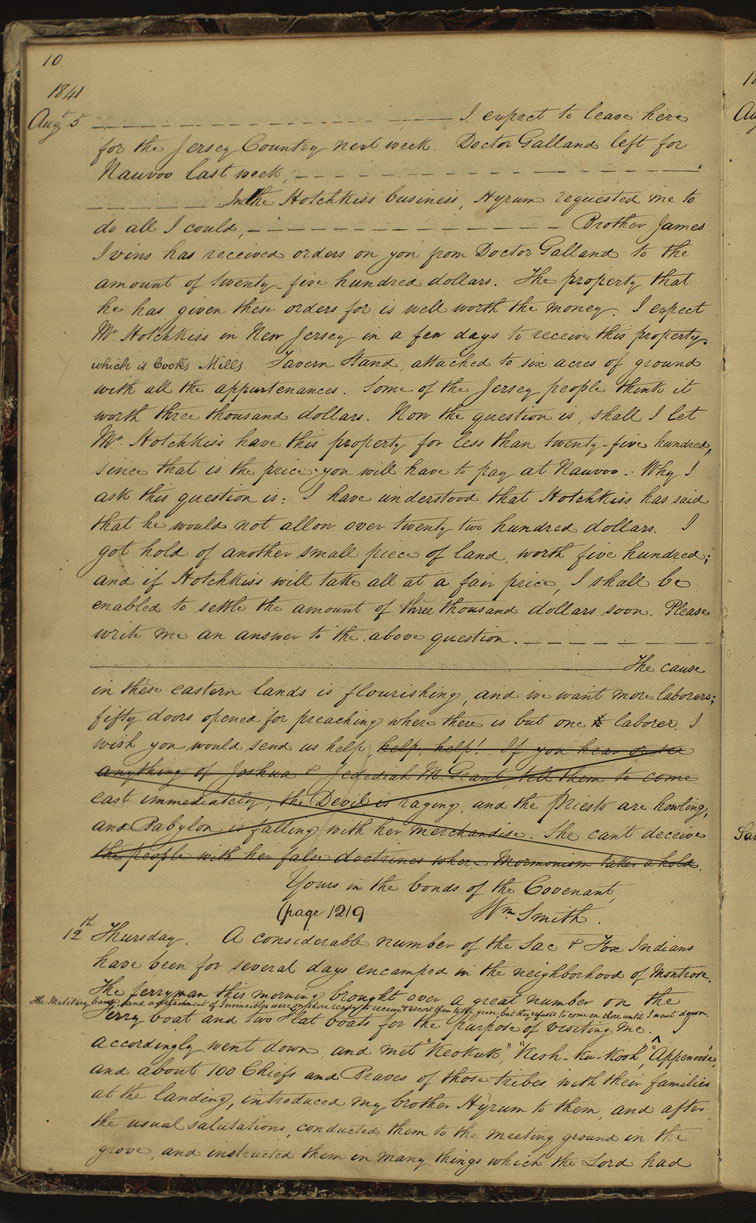 10
1841
Augt 5 — I expect to leave here
for the Jersey Country next week. Doctor Galland left for
Nauvoo last week,
In the Hotchkiss business, Hyrum requested me to
do all I could, — Brother James
Ivins has received orders on you from Doctor Galland to the
amount of twenty-five hundred dollars. The property that
he has given these orders for is well worth the money. I expect
Mr Hotchkiss in New Jersey in a few days to receive this property,
which is Cook's Mills Tavern Stand, attached to six acres of ground
with all the appurtenances. Some of the Jersey people think it
worth three thousand dollars. Now the question is, shall I let
Mr. Hotchkiss have this property for less than twenty-five hundred,
since that is the price you will have to pay at Nauvoo. Why I
ask this question is: I have understood that Hotchkiss has said
that he would not allow over twenty two hundred dollars. I
got hold of another small piece of land, worth five hundred;
and if Hotchkiss will take all at a fair price, I shall be
enabled to settle the amount of three thousand dollars soon. Please
write me an answer to the above question.
The cause
in these eastern lands is flourishing, and we want more laborers;
fifty doors opened for preaching where there is but one laborer. I
wish you would send us help help, help! If you hear or see
anything of Joshua & Jedediah M. Grant tell them to come
east immediately; the Devil is raging, and the Priests are howling,
and Babylon is falling with her merchandise. She can't deceive
the people with her false doctrines where Mormonism takes a hold.
Yours in the bonds of the Covenant,
(page 1219 Wm Smith.
12th Thursday. A considerable number of the Sac & Fox Indians
have been for several days encamped in the neighborhood of Montrose.
The ferryman this morning brought over a great number on the
The Military band and a detachment of Invincibles were on shore ready to receive & escort them to the grove, but they refused to come on shore until I went down.
Ferry boat and two Flat boats for the purpose of visiting me. I
accordingly went down, and met "Keokuk" "Kish-ku-kosh," "Appenoose,"
and about 100 Chiefs and Braves of those tribes with their families
at the landing, introduced my brother Hyrum to them, and after
the usual salutations, conducted them to the meeting ground in the
grove, and instructed them in many things which the Lord had